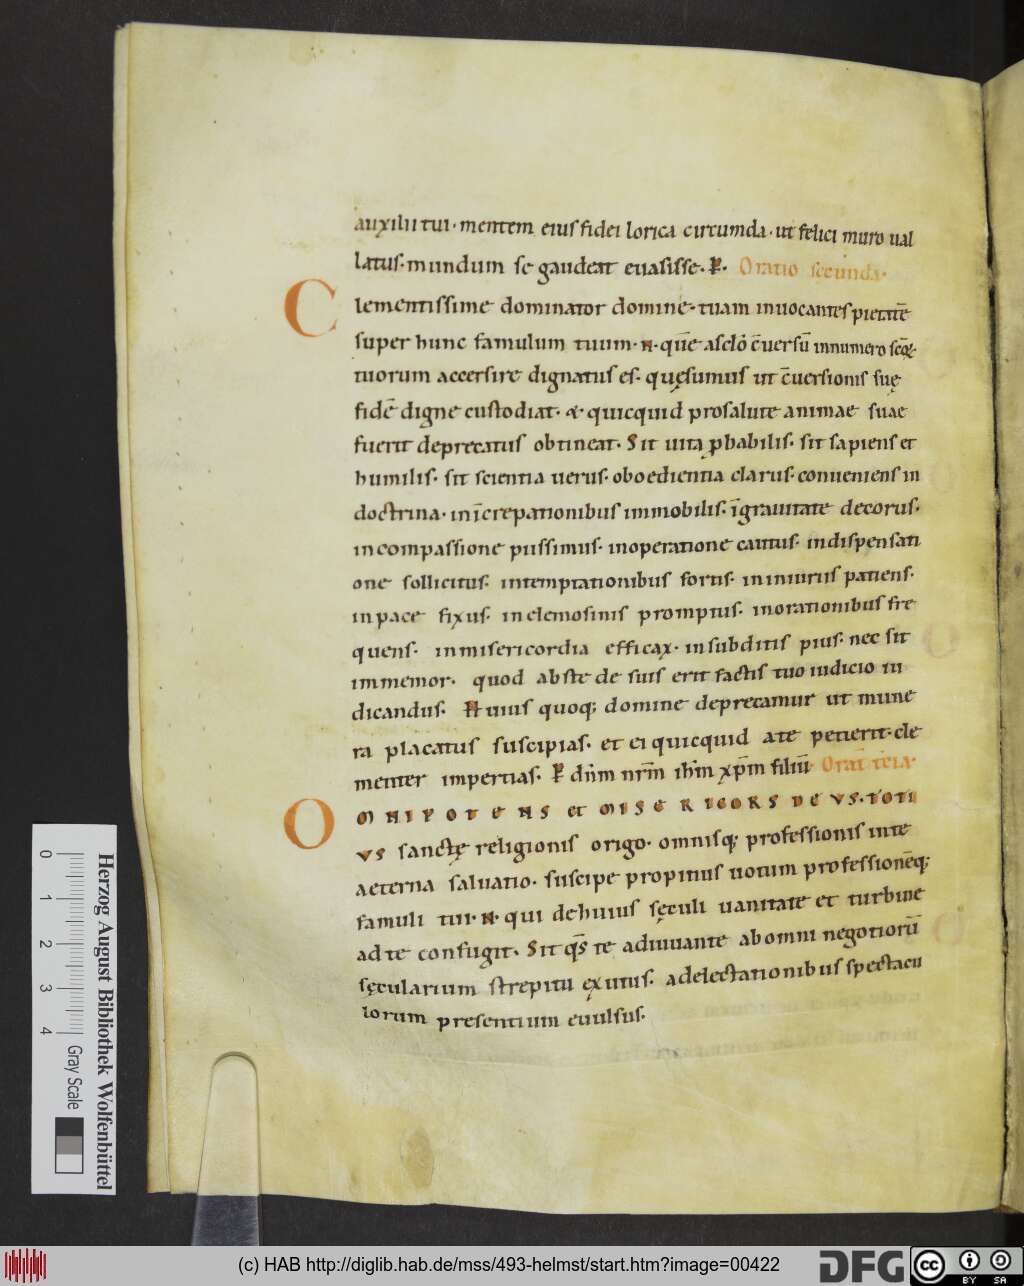 auxilii tui· mentem eius fidei lorica circumda· ut felici muro ual
latus· mundum se gaudeat euasisse· P̄· Oratio secunda·
Clementissime dominator domine· tuam inuocantes pietatē
super hunc famulum tuum· N· quē ascło c̄uersū innumero
tuorum accersire dignatus es· quęsumus ut c̄uersionis suę
fidē digne custodiat· & quicquid prosalute animae suae
fuerit deprecatus obtineat· Sit uita ꝓbabilis· sit sapiens et
humilis· sit scientia uerus· oboedientia clarus· conueniens in
doctrina· in īcrepationibus immobilis· īgrauitate decorus·
incompassione piissimus· inoperatione cautus· indispensati
one sollicitus· intemptationibus fortis· ininiuriis patiens·
inpace fixus· inelemosinis promptus· inorationibus fre
quens· inmisericordia efficax· insubditis pius· nec sit
immemor· quod abste de suis erit factis tuo iudicio iu
dicandus· Huius quoq; domine deprecamur ut mune
ra placatus suscipias· et ei quicquid ate petierit· cle
menter impertias· P̄ dn̄m nr̄m ih̄m xp̄m filiū Orat̄ t̄cia·
OMNIPOTENS et MISERICORS DEUS· TOTI
VS sanctę religionis origo· omnisq; professionis inte
aeterna saluatio· suscipe propitius uotum professionēq;
famuli tui· N· qui dehuius sęculi uanitate et turbine
ad te confugit· Sit qs̄ te adiuuante ab omni negotiorū
sęcularium strepitu exutus· adelectationibus spectacu
lorum presentium euulsus·
0 1 2 3 4
Gray Scale
Herzog August Bibliothek Wolfenbüttel
(c) HAB http://diglib.hab.de/mss/493-helmst/start.htm?image=00422
DFG
cc BY SA